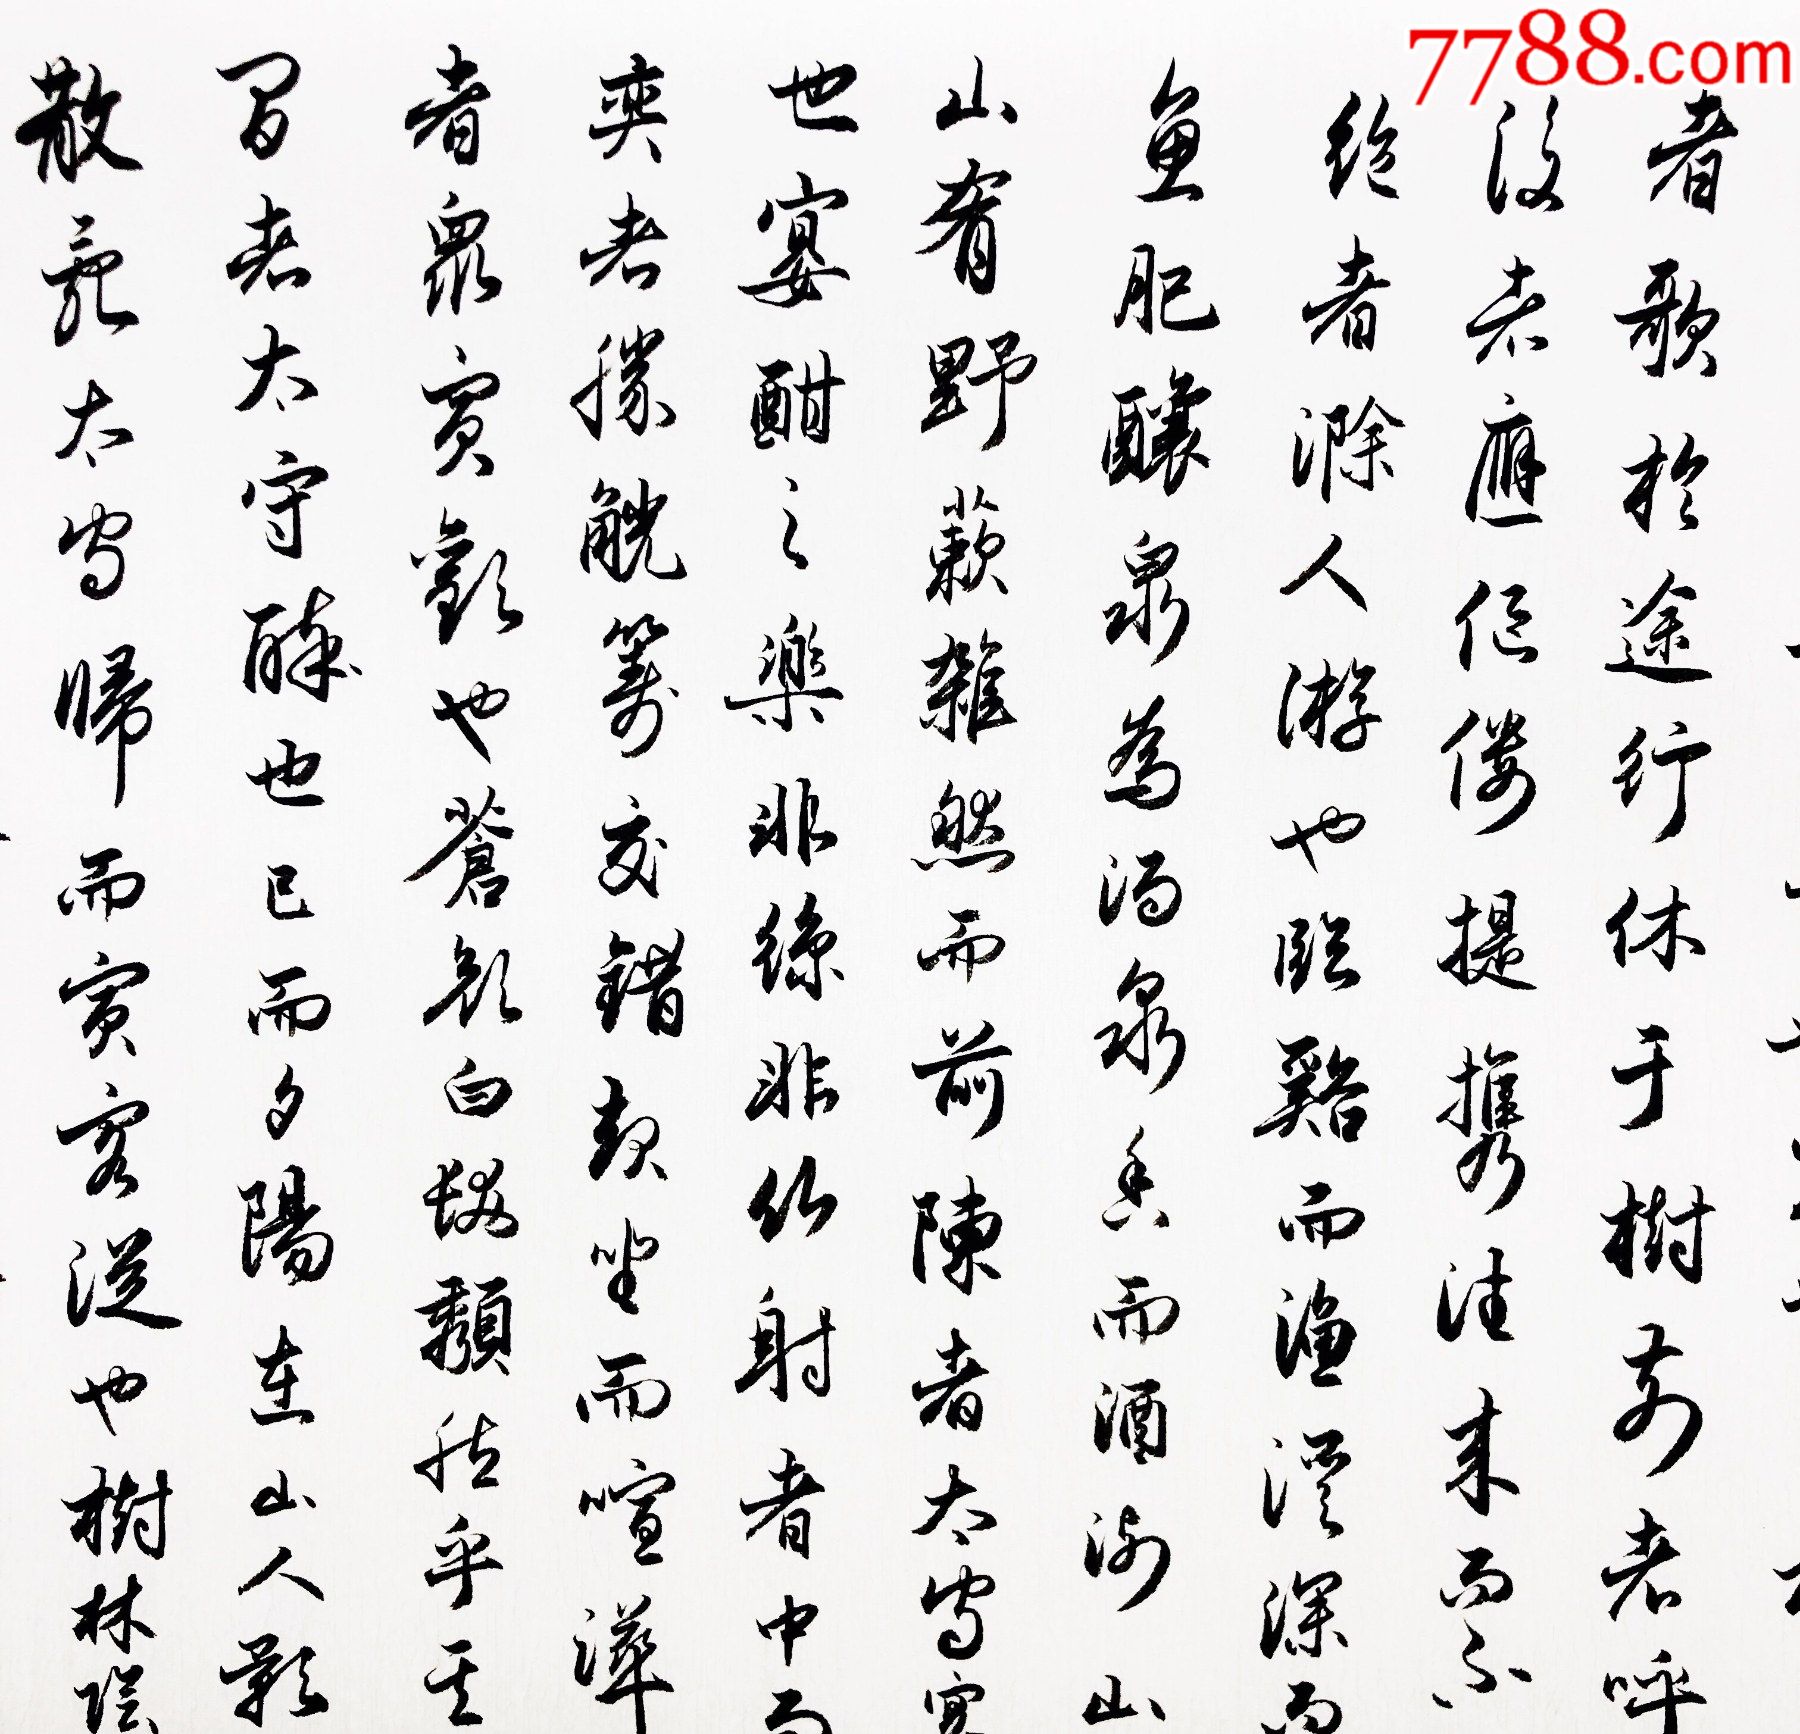 7788.com
者歌於途行休于樹前者呼
後者應傴僂提攜往來而不
絕者滁人游也臨谿而漁谿深而
魚肥釀泉為酒泉香而酒洌山
山肴野蔌雜然而前陳者太守宴
也宴酣之樂非絲非竹射者中而
奕者勝觥籌交錯起坐而喧嘩
者眾賓歡也蒼顏白髮頹然乎其
間者太守醉也已而夕陽在山人影
散亂太守歸而賓客從也樹林陰